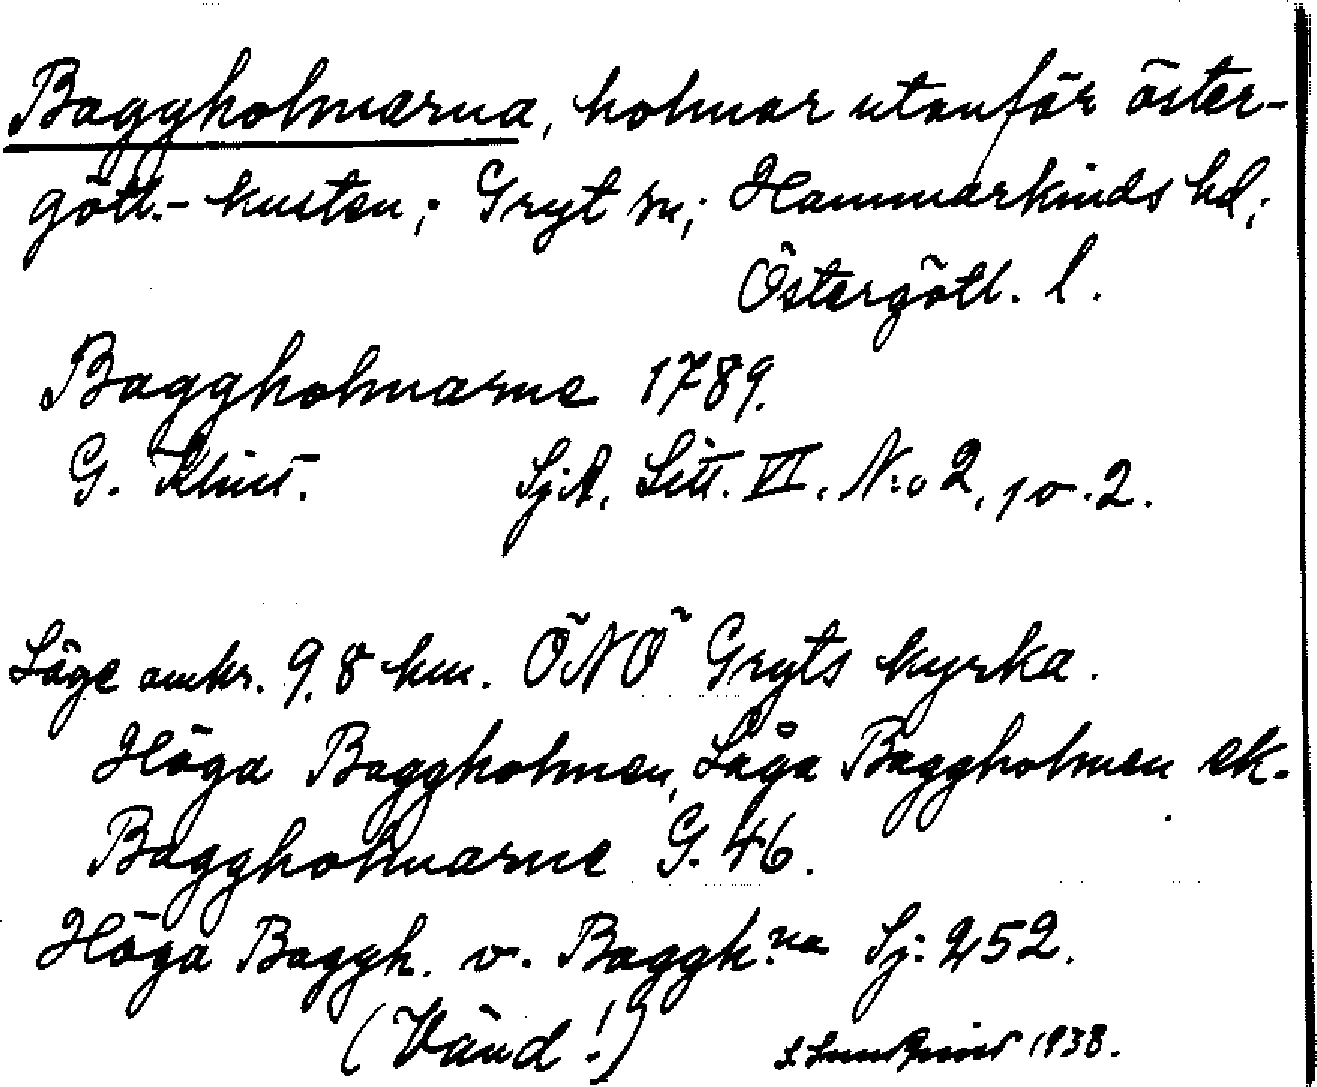 Baggholmarna, holmar utanför öster-
götl.-kusten; Gryt sn; Hammarkinds hd;
Östergötl. l.
Baggholmarne 1789.
G. Klint. SjA. Litt. VI. N:o 2, 10.2.
Läge omkr. 9,8 km. ÖNÖ Gryts kyrka.
Höga Baggholmen, Låga Baggholmen ek.
Baggholmarne G. 46.
Höga Baggh. o. Baggh:na Sj: 252.
(Vänd!) 1938.